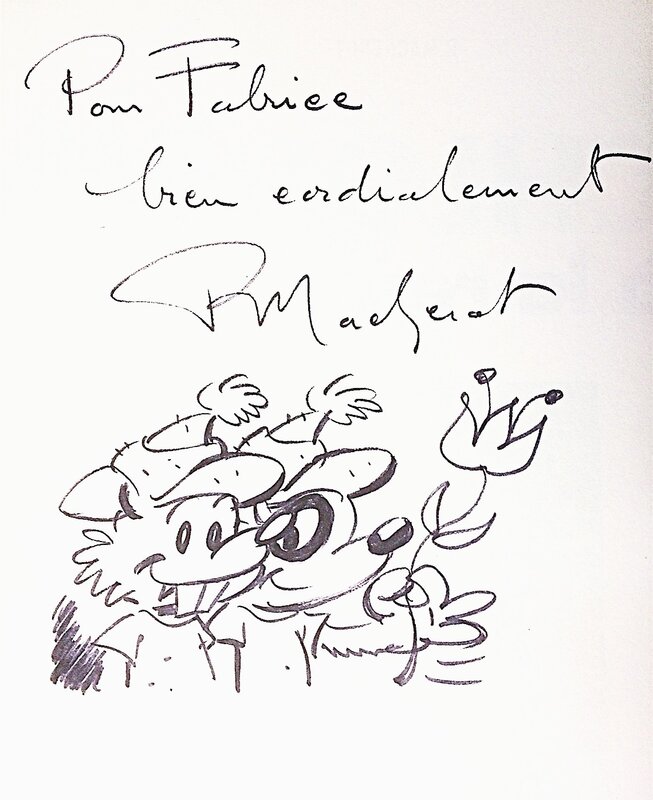 Pour Fabrice
bien cordialement
R Macherot